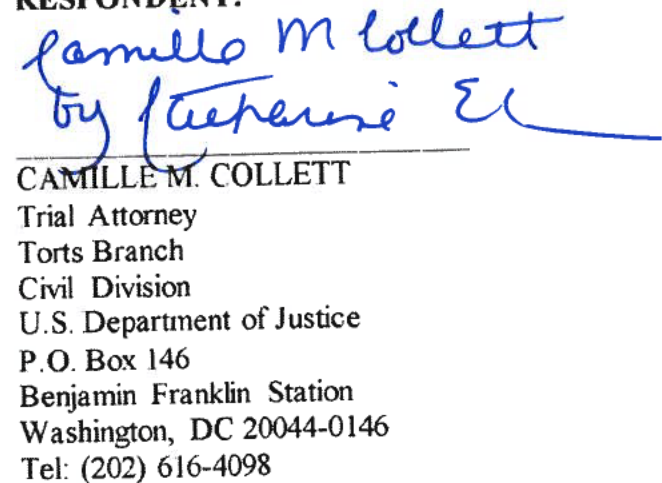 RESPONDENT:
Camille M Collett
by
CAMILLE M. COLLETT
Trial Attorney
Torts Branch
Civil Division
U.S. Department of Justice
P.O. Box 146
Benjamin Franklin Station
Washington, DC 20044-0146
Tel: (202) 616-4098